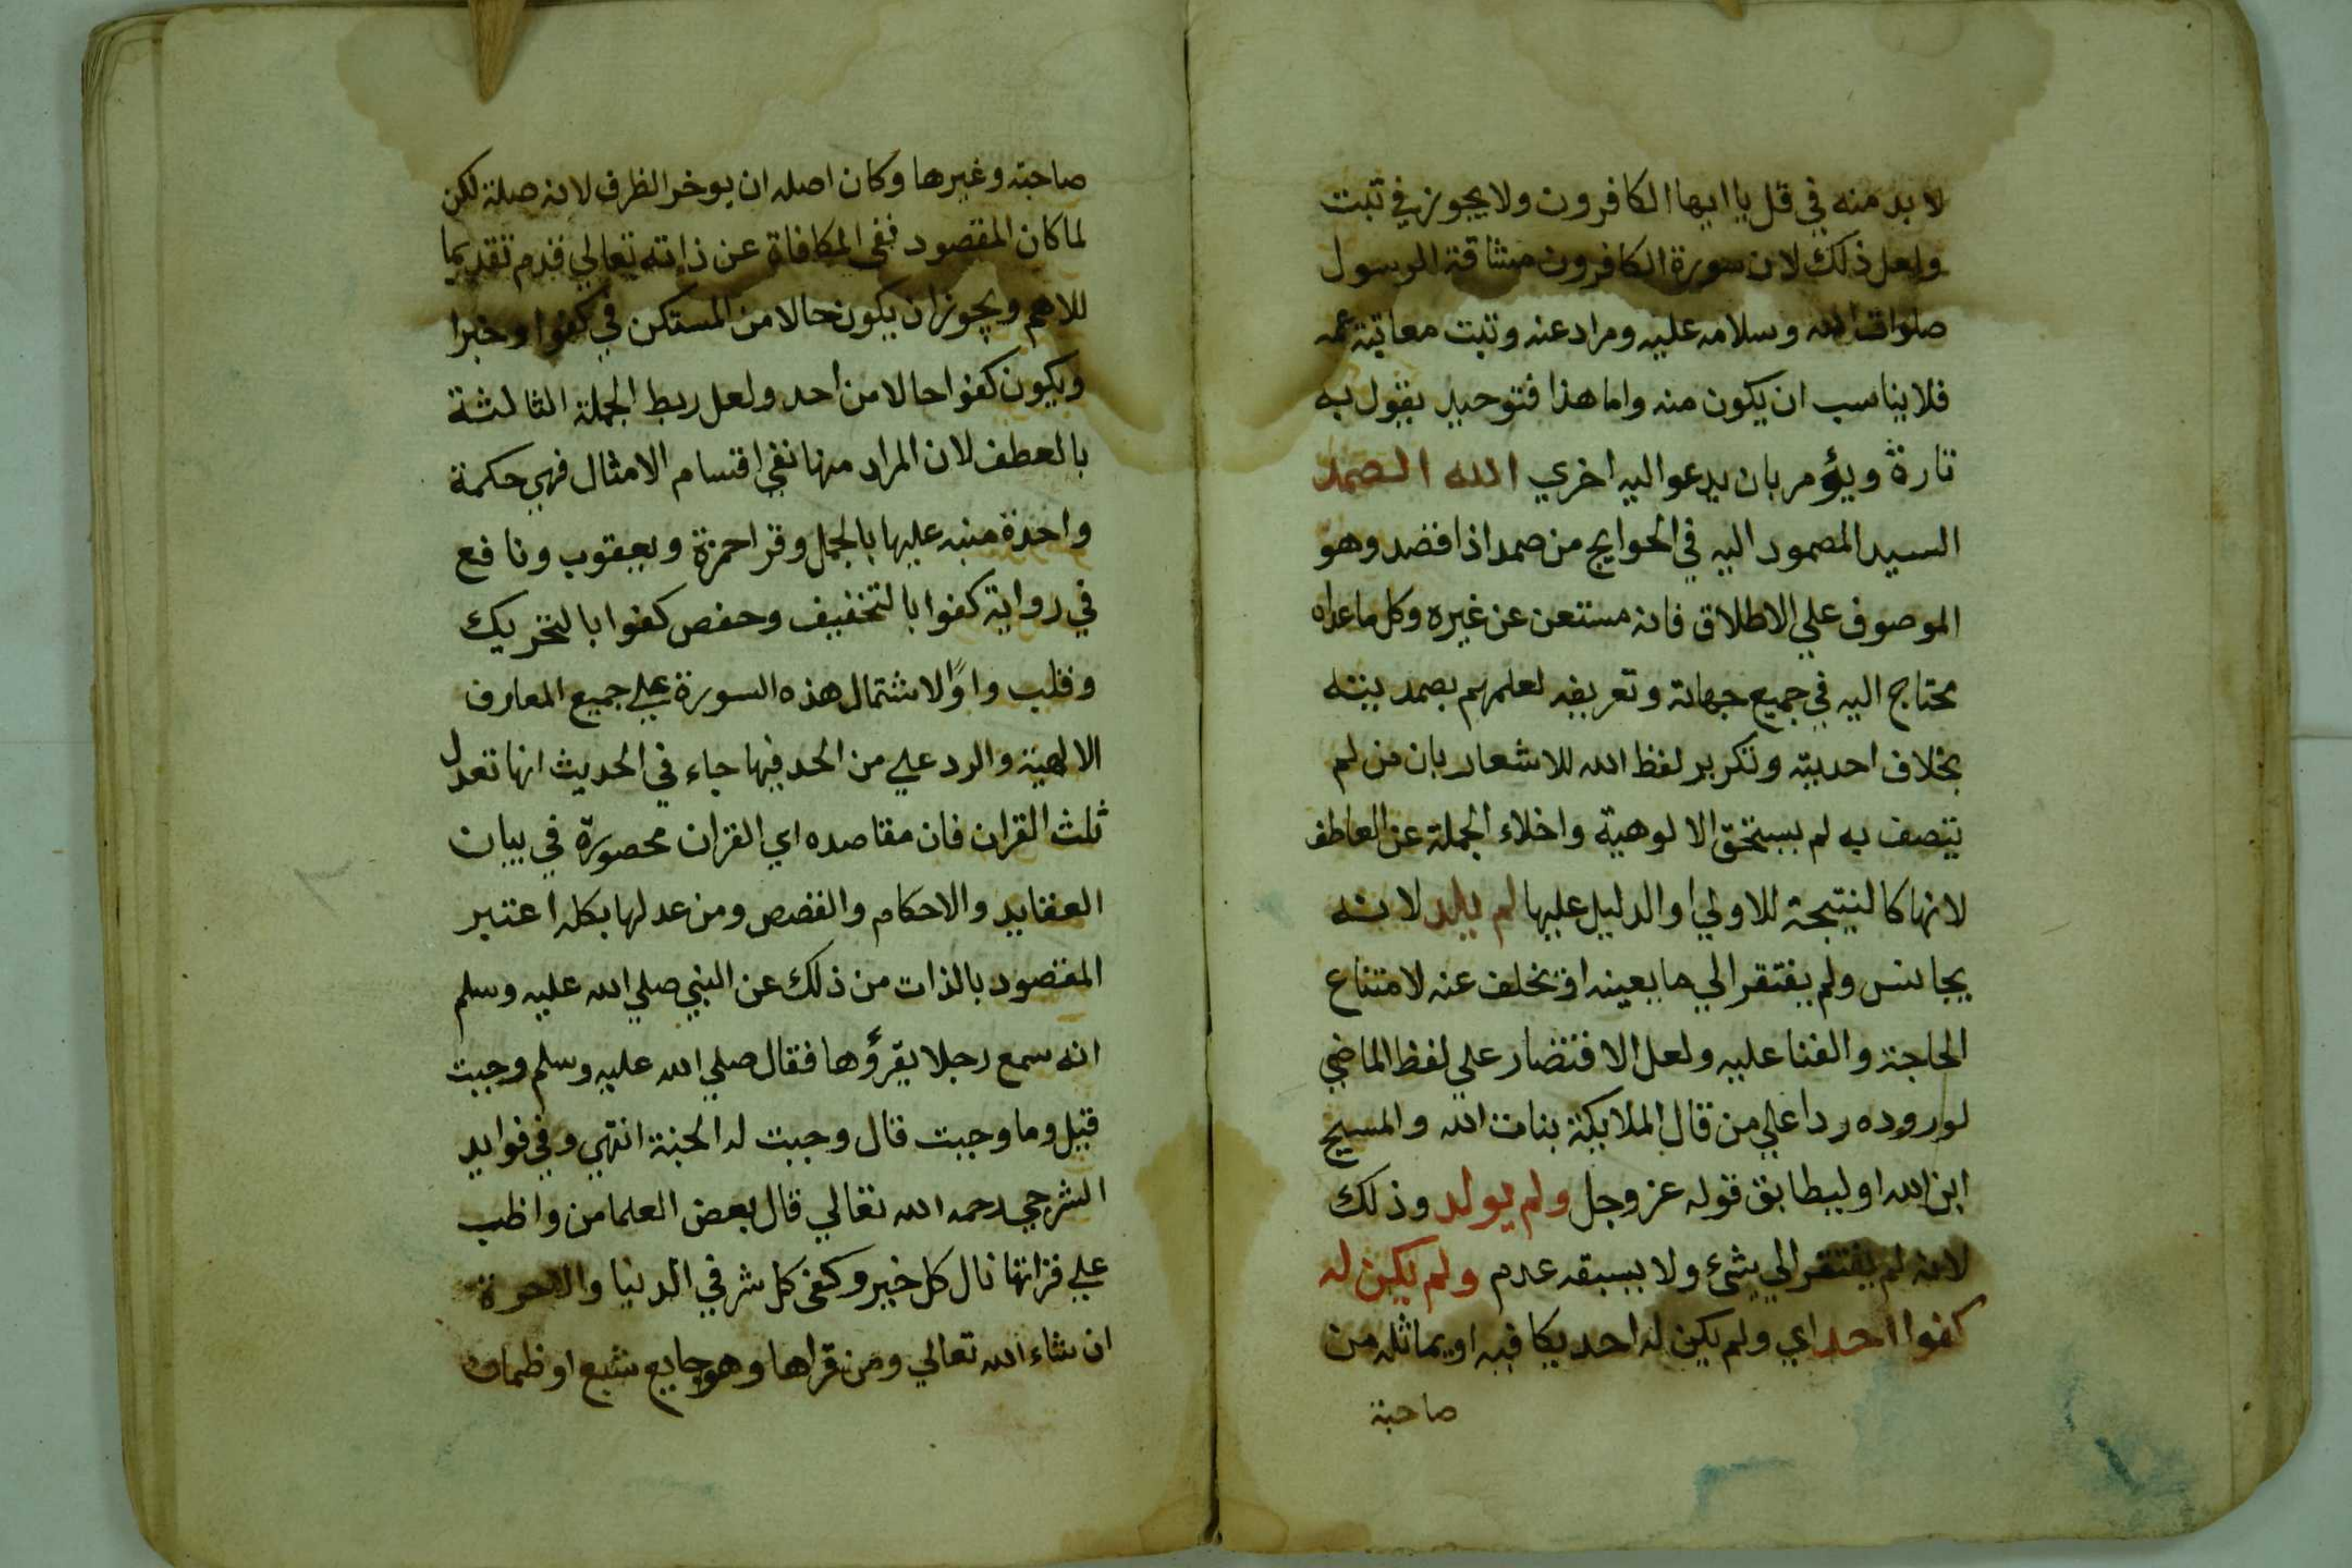 لا بد منه في قل يا ايها الكافرون ولا يجوز في تبت
ولعل ذلك لان سورة الكافرون مشاقة الرسول
صلوات الله وسلامه عليه ومراد عنه وتبت معاتبة عمه
فلا يناسب ان يكون منه واما هذا فتوحيد يقول به
تارة ويؤمر بان يدعو اليه اخري الله الصمد
السيد المصمود اليه في الحوايج من صمد اذا قصد وهو
الموصوف علي الاطلاق فانه مستعن عن غيره وكل ما عداه
محتاج اليه في جميع جهاته وتعريفه لعلمهم بصمديته
بخلاف احديته وتكرير لفظ الله للاشعار بان من لم
يتصف به لم يستحق الالوهية واخلاء الجملة عن العاطف
لانها كالنتيجة للاولي او الدليل عليها لم يلد لانه
يجانس ولم يفتقر الي ما يعينه او تخلف عنه لامتناع
الحاجة والفنا عليه ولعل الاقتصار علي لفظ الماضي
لوروده ردا علي من قال الملايكة بنات الله والمسيح
ابن الله او ليطابق قوله عز وجل ولم يولد وذلك
لانه لم يفتقر الي شئ ولا يسبقه عدم ولم يكن له
كفوا احد اي ولم يكن له احد يكافيه او يماثله من
صاحبة
صاحبة وغيرها وكان اصله ان يوخر الظرف لانه صلة لكن
لما كان المقصود نفي المكافاة عن ذاته تعالي قدم تقديما
للاهم ويجوز ان يكون حالا من المستكن في كفوا وخبرا
ويكون كفوا حالا من احد ولعل ربط الجملة الثالثة
بالعطف لان المراد منها نفي اقسام الامثال فهي حكمة
واحدة منبه عليها بالجمل وقرا حمزة ويعقوب ونافع
في رواية كفوا بالتخفيف وحفص كفوا بالتحريك
وقلب واوًا لاشتمال هذه السورة علي جميع المعارف
الالهية والرد علي من الحد فيها جاء في الحديث انها تعدل
ثلث القران فان مقاصده اي القران محصورة في بيان
العقايد والاحكام والقصص ومن عدلها بكله اعتبر
المقصود بالذات من ذلك عن النبي صلي الله عليه وسلم
انه سمع رجلا يقرؤها فقال صلي الله عليه وسلم وجبت
قيل وما وجبت قال وجبت له الجنة انتهي وفي فوايد
الشرجي رحمه الله تعالي قال بعض العلما من واظب
علي قراتها نال كل خير وكفي كل شر في الدنيا والاخرة
ان شاء الله تعالي ومن قراها وهو جايع شبع او ظمان